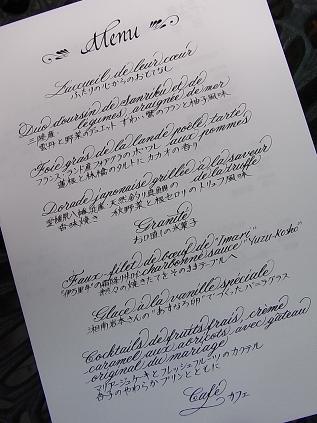 Menu
L'accueil de leur cœur
ふたりの心からのおもてなし
Duo d'oursin de Sanriku et de
légumes, araignée de mer
三陸産
雲丹と野菜のデュエット ずわい蟹のフランと柚子風味
Foie gras de la lande poêlé, tarte
aux pommes
フランス・ランド産フォアグラのポワレ
蓮根と林檎のタルトにカカオの香り
Dorade japonaise grillée à la saveur
de la truffe
愛媛県八幡浜産 天然釣り真鯛の
香味焼き 秋野菜と根セロリのトリュフ風味
Granité
お口直しの氷菓子
Faux-filet de bœuf de "Imari"
charbonné sauce "Yuzu-Kosho"
"伊万里牛"の霜降り
熱々の焼きたてをそのままテーブルへ
Glace à la vanille spéciale
湘南 さんの"あすなろ卵"でつくったバニラグラス
Cocktails de fruits frais, crème
caramel aux abricots avec gâteau
original du mariage
マリアージュケーキとフレッシュフルーツのカクテル
杏子のやわらかプリンとともに
Café カフェ